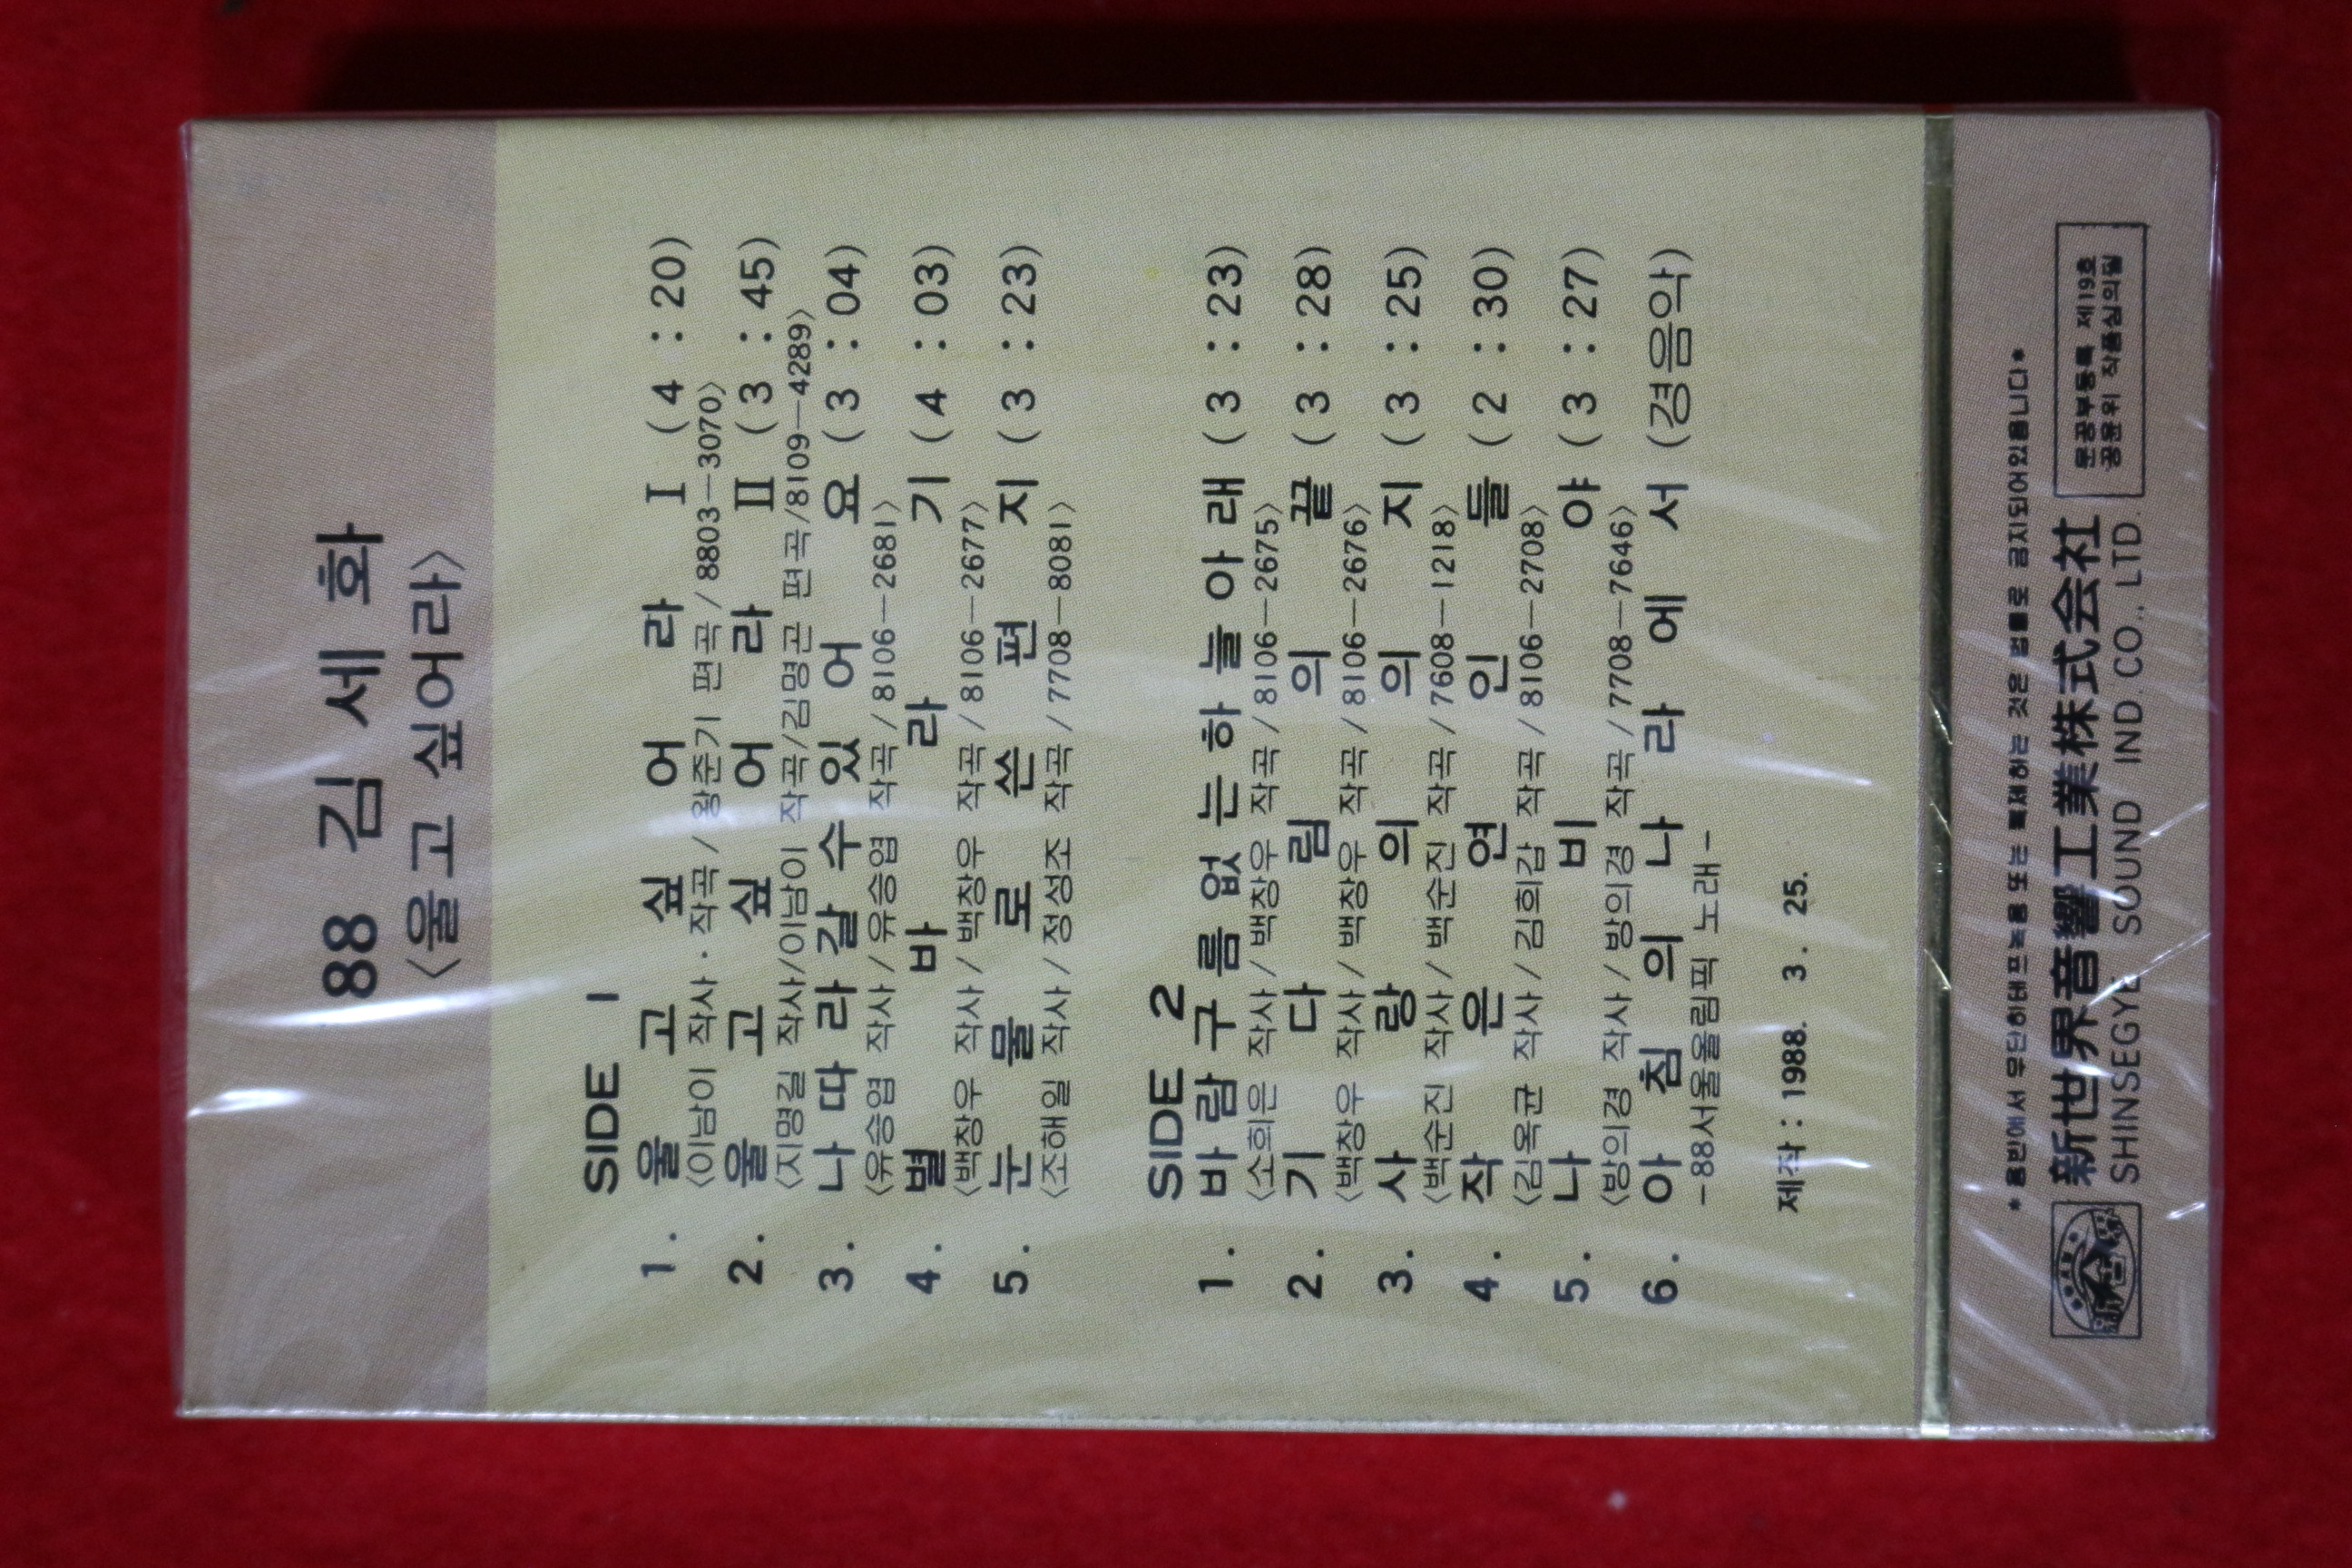 88 김 세 화
〈울고 싶어라〉
SIDE 1
1. 울 고 싶 어 라 Ⅰ (4 : 20)
〈이남이 작사 · 작곡 / 왕준기 편곡 / 8803—3070〉
2. 울 고 싶 어 라 Ⅱ (3 : 45)
〈지명길 작사/이남이 작곡/김명곤 편곡/8109—4289〉
3. 나 따 라 갈 수 있 어 요 (3 : 04)
〈유승엽 작사 / 유승엽 작곡 / 8106—2681〉
4. 별 바 라 기 (4 : 03)
〈백창우 작사 / 백창우 작곡 / 8106—2677〉
5. 눈 물 로 쓴 편 지 (3 : 23)
〈조해일 작사 / 정성조 작곡 / 7708—8081〉
SIDE 2
1. 바 람 구 름 없 는 하 늘 아 래 (3 : 23)
〈소희은 작사 / 백창우 작곡 / 8106—2675〉
2. 기 다 림 의 끝 (3 : 28)
〈백창우 작사 / 백창우 작곡 / 8106—2676〉
3. 사 랑 의 의 지 (3 : 25)
〈백순진 작사 / 백순진 작곡 / 7608—1218〉
4. 작 은 연 인 들 (2 : 30)
〈김옥균 작사 / 김희갑 작곡 / 8106—2708〉
5. 나 비 야 (3 : 27)
〈방의경 작사 / 방의경 작곡 / 7708—7646〉
6. 아 침 의 나 라 에 서 (경음악)
-88서울올림픽 노래-
제작 : 1988. 3. 25.
*음반에서 무단히테프녹음 또는 복제하는 것은 법률로 금지되어있읍니다*
新世界音響工業株式会社
SHINSEGYE SOUND IND. CO., LTD.
문공부등록 제19호
공윤위 작품심의필